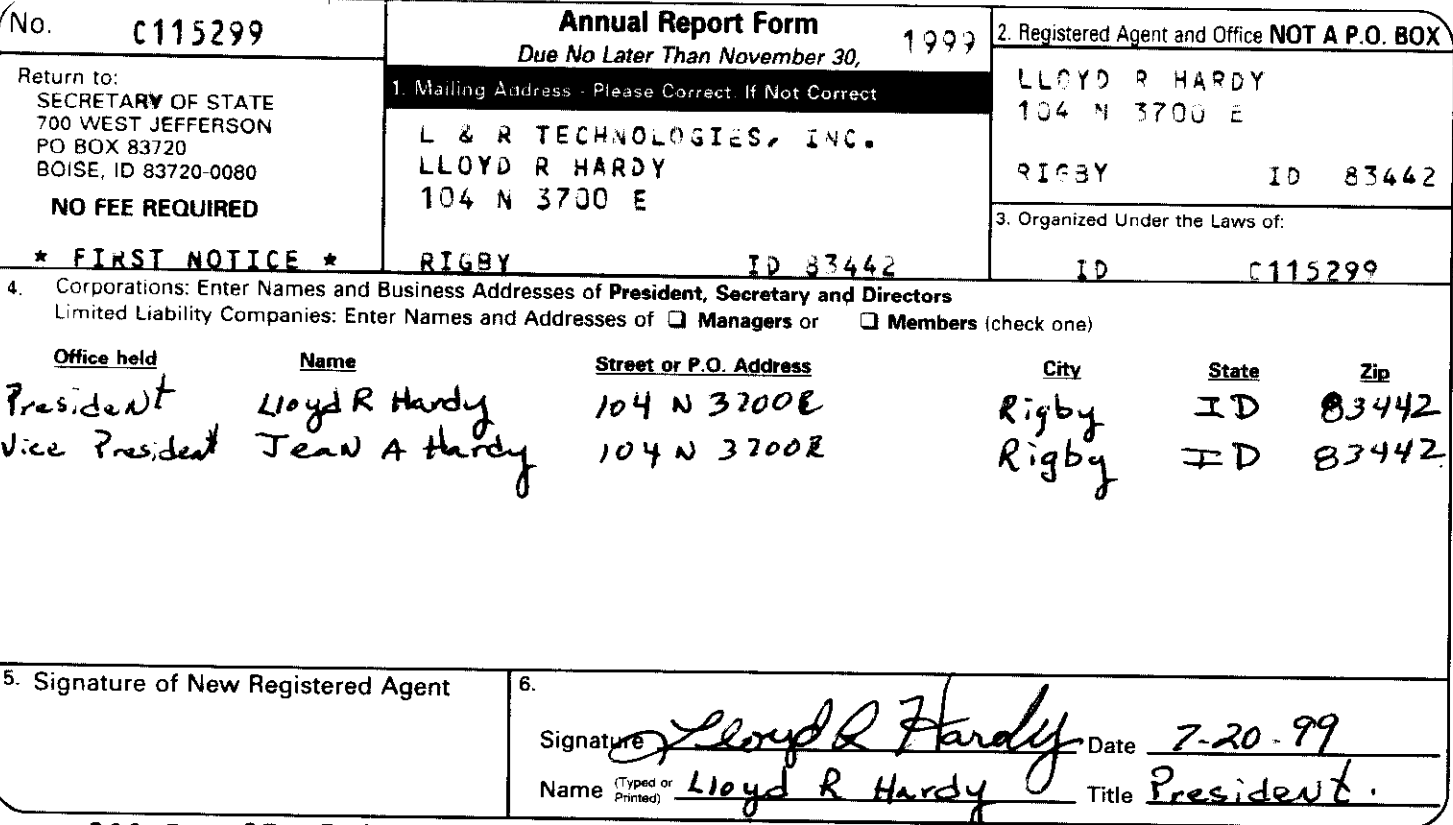 No. C115299
Return to:
SECRETARY OF STATE
700 WEST JEFFERSON
PO BOX 83720
BOISE, ID 83720-0080
NO FEE REQUIRED
* FIRST NOTICE *
Annual Report Form
Due No Later Than November 30, 1999
1. Mailing Address - Please Correct If Not Correct
L & R TECHNOLOGIES, INC.
LLOYD R HARDY
104 N 3700 E
RIGBY ID 83442
2. Registered Agent and Office NOT A P.O. BOX
LLOYD R HARDY
104 N 3700 E
RIGBY ID 83442
3. Organized Under the Laws of:
ID C115299
4. Corporations: Enter Names and Business Addresses of President, Secretary and Directors
Limited Liability Companies: Enter Names and Addresses of ❑ Managers or ❑ Members (check one)
Office held Name Street or P.O. Address City State Zip
President Lloyd R Hardy 104 N 3700E Rigby ID 83442
Vice President Jean A Hardy 104 N 3700E Rigby ID 83442
5. Signature of New Registered Agent
6.
Signature Lloyd R Hardy Date 7-20-99
Name (Typed or Printed) Lloyd R Hardy Title President.